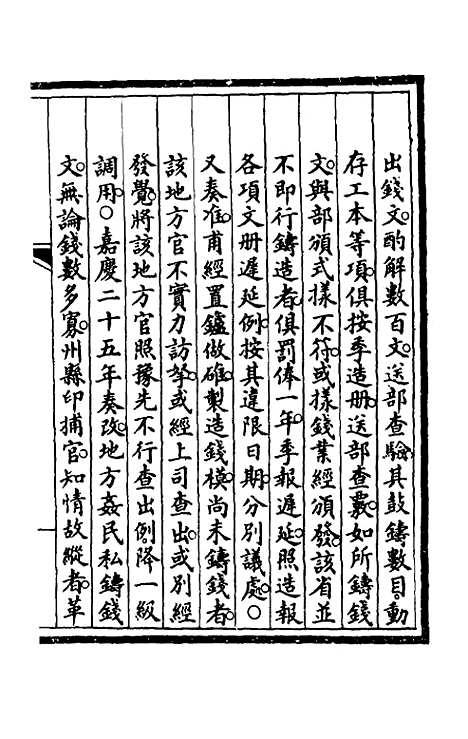 出錢文酌解數百文送部查驗其鼓鑄數目動
存工本等項俱按季造册送部查覈如所鑄錢
文與部頒式樣不符或樣錢業經頒發該省並
不即行鑄造者俱罰俸一年季報遲延照造報
各項文册遲延例按其違限日期分別議處○
又奏准甫經置鑪做碓製造錢模尚未鑄錢者
該地方官不實力訪拏或經上司查出或別經
發覺將該地方官照豫先不行查出例降一級
調用○嘉慶二十五年奏改地方姦民私鑄錢
文無論錢數多寡州縣印捕官知情故縱者革